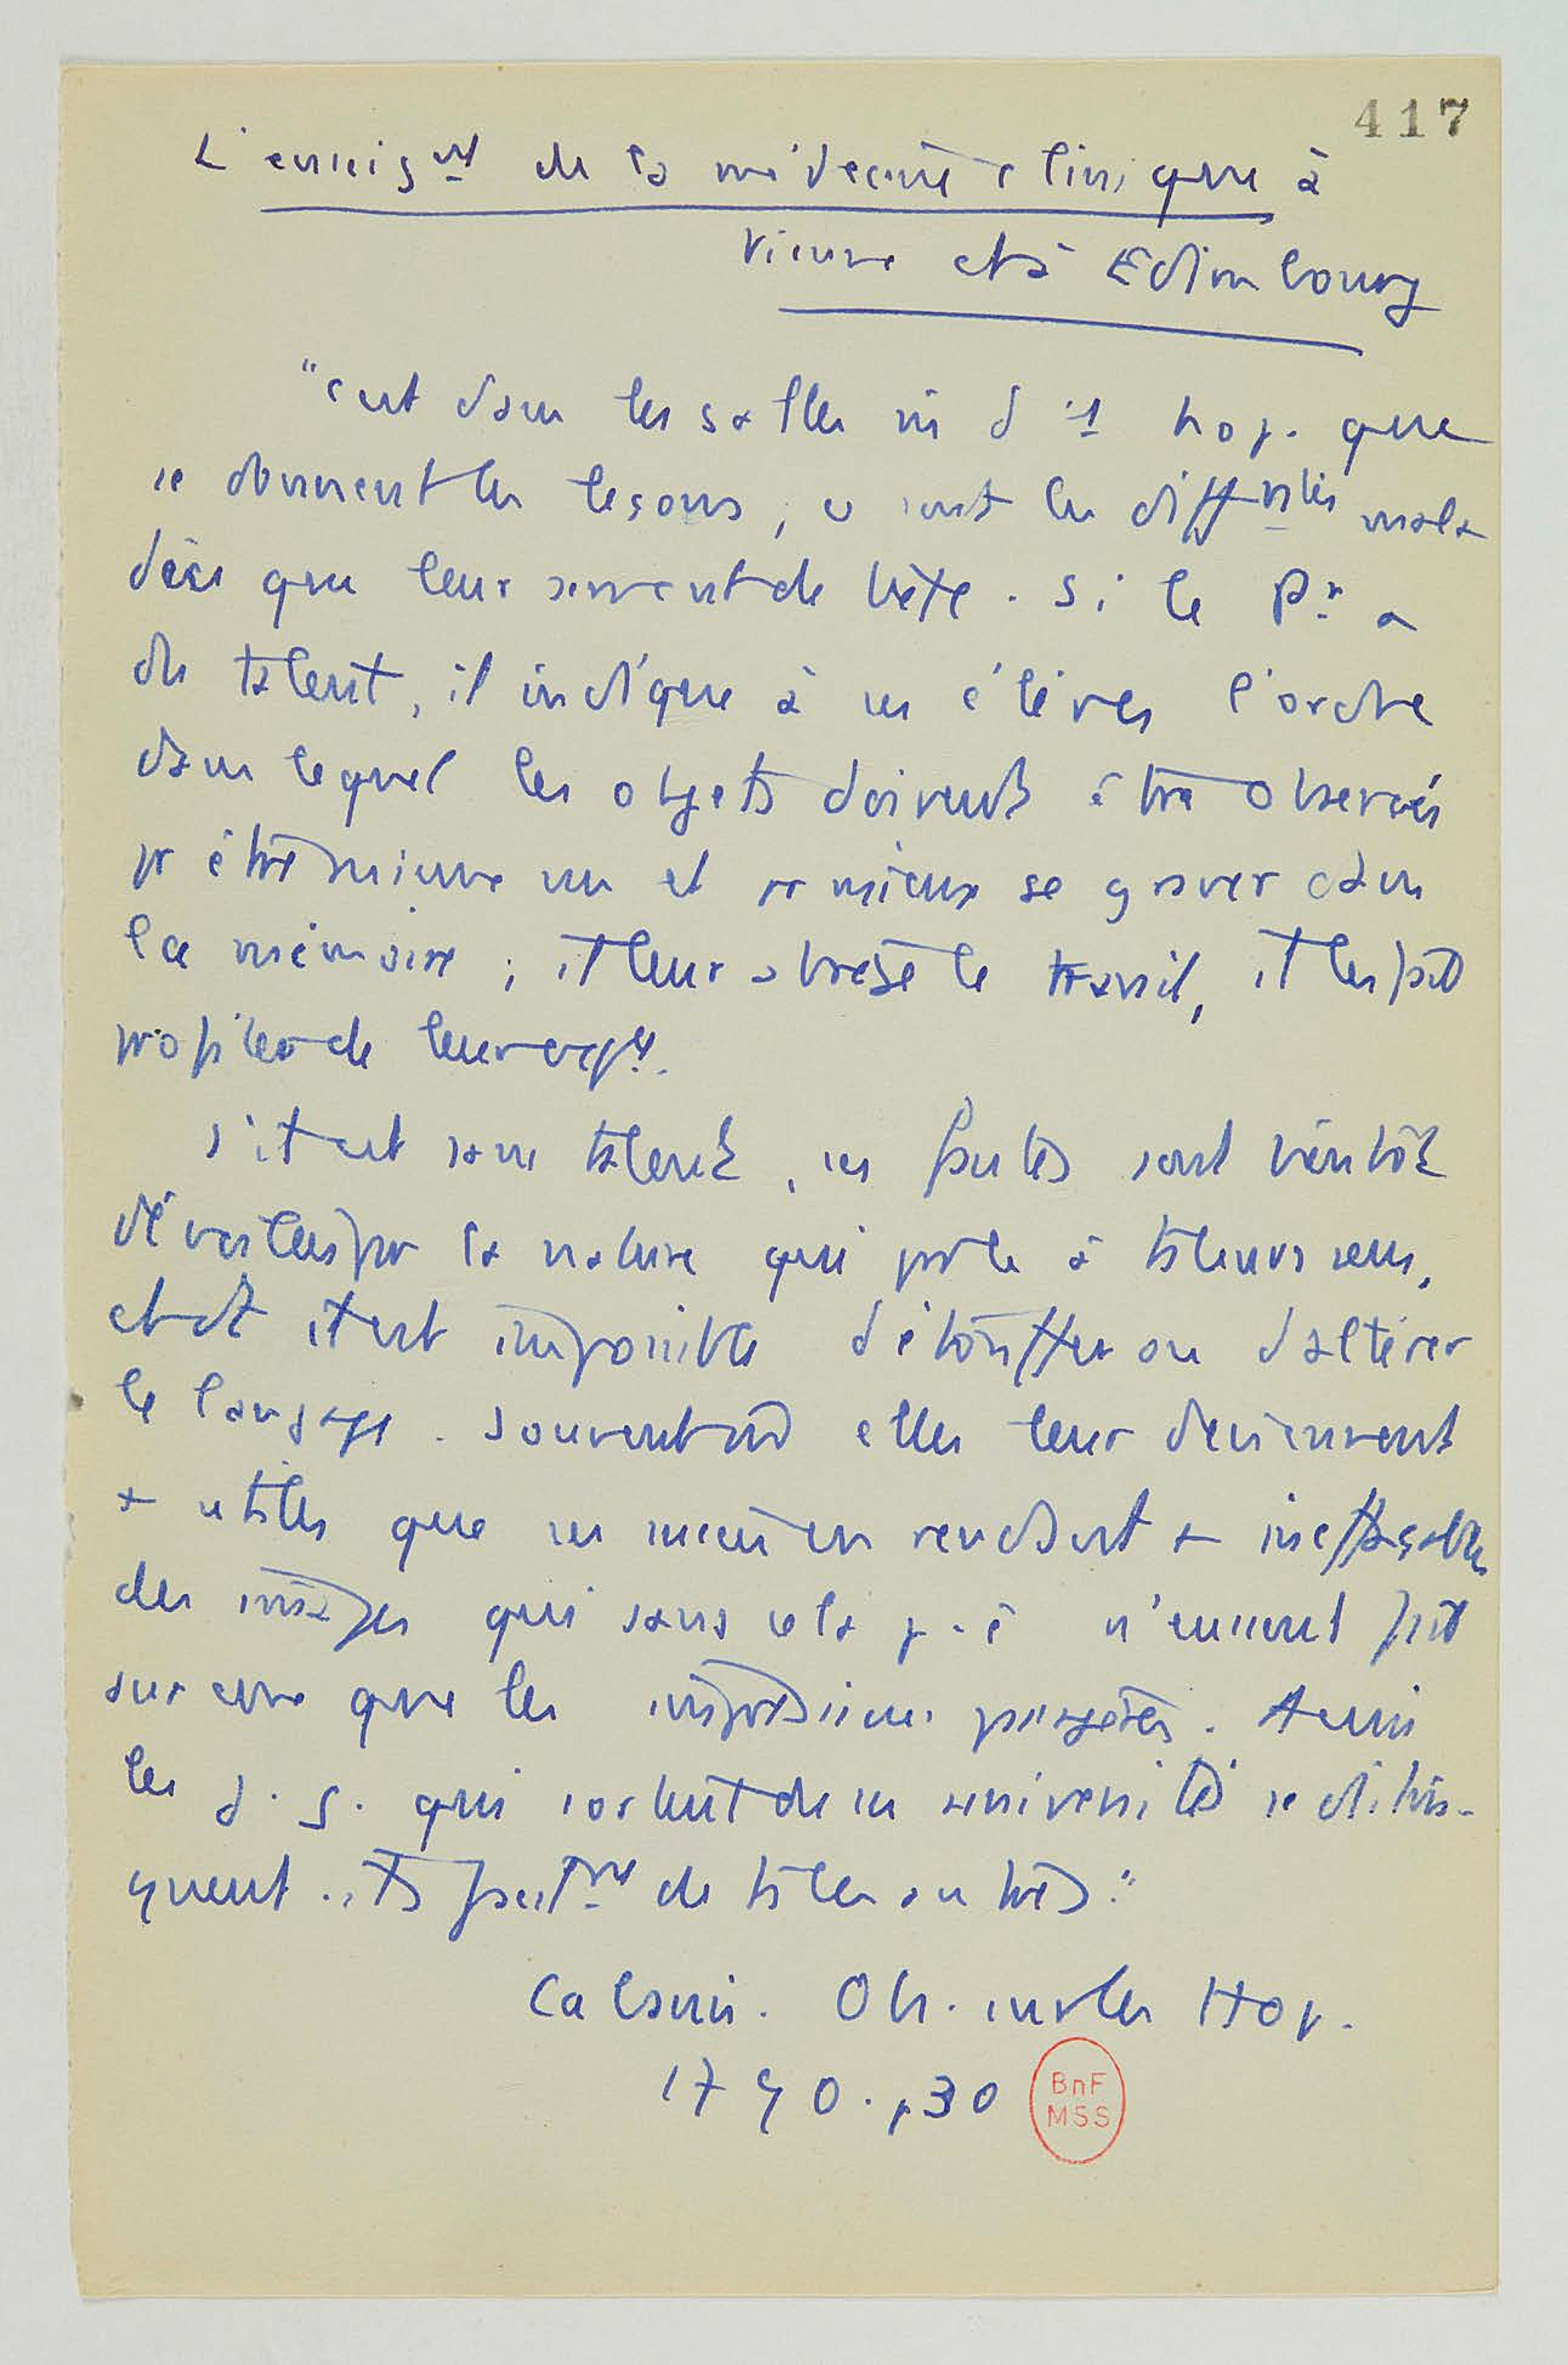 417
L'enseig^nt de la médecine clinique à
Vienne et à Edimbourg
"c'est dans les salles m d'1 hop. que
se donnent les leçons, ce sont les diff^ntes mala
dies qui leur servent de texte. Si le Pr a
du talent, il indique à ses élèves l'ordre
dans lequel les objets doivent être observés
pr être mieux vu et pr mieux se graver dans
la mémoire ; il leur abrège le travail, il les fait
profiter de leur
s'il est sans talent, ses fautes sont bientôt
dévoilées par la nature qui parle à tous leurs sens,
et dt il est impossible d'étouffer ou d'altérer
le langage. Souvent md elles leur deviennent
+ utiles que ses succès en rendant + ineffaçables
des images qui sans cela p.ê n'eussent fait
sur eux que les impressions passagères. Aussi
les j. g. qui sortent de ces universités se distin-
guent .. ts facil^mt de ts les autres."
Cabanis. Obs. sur les Hop.
1790. p30
BnF
MSS